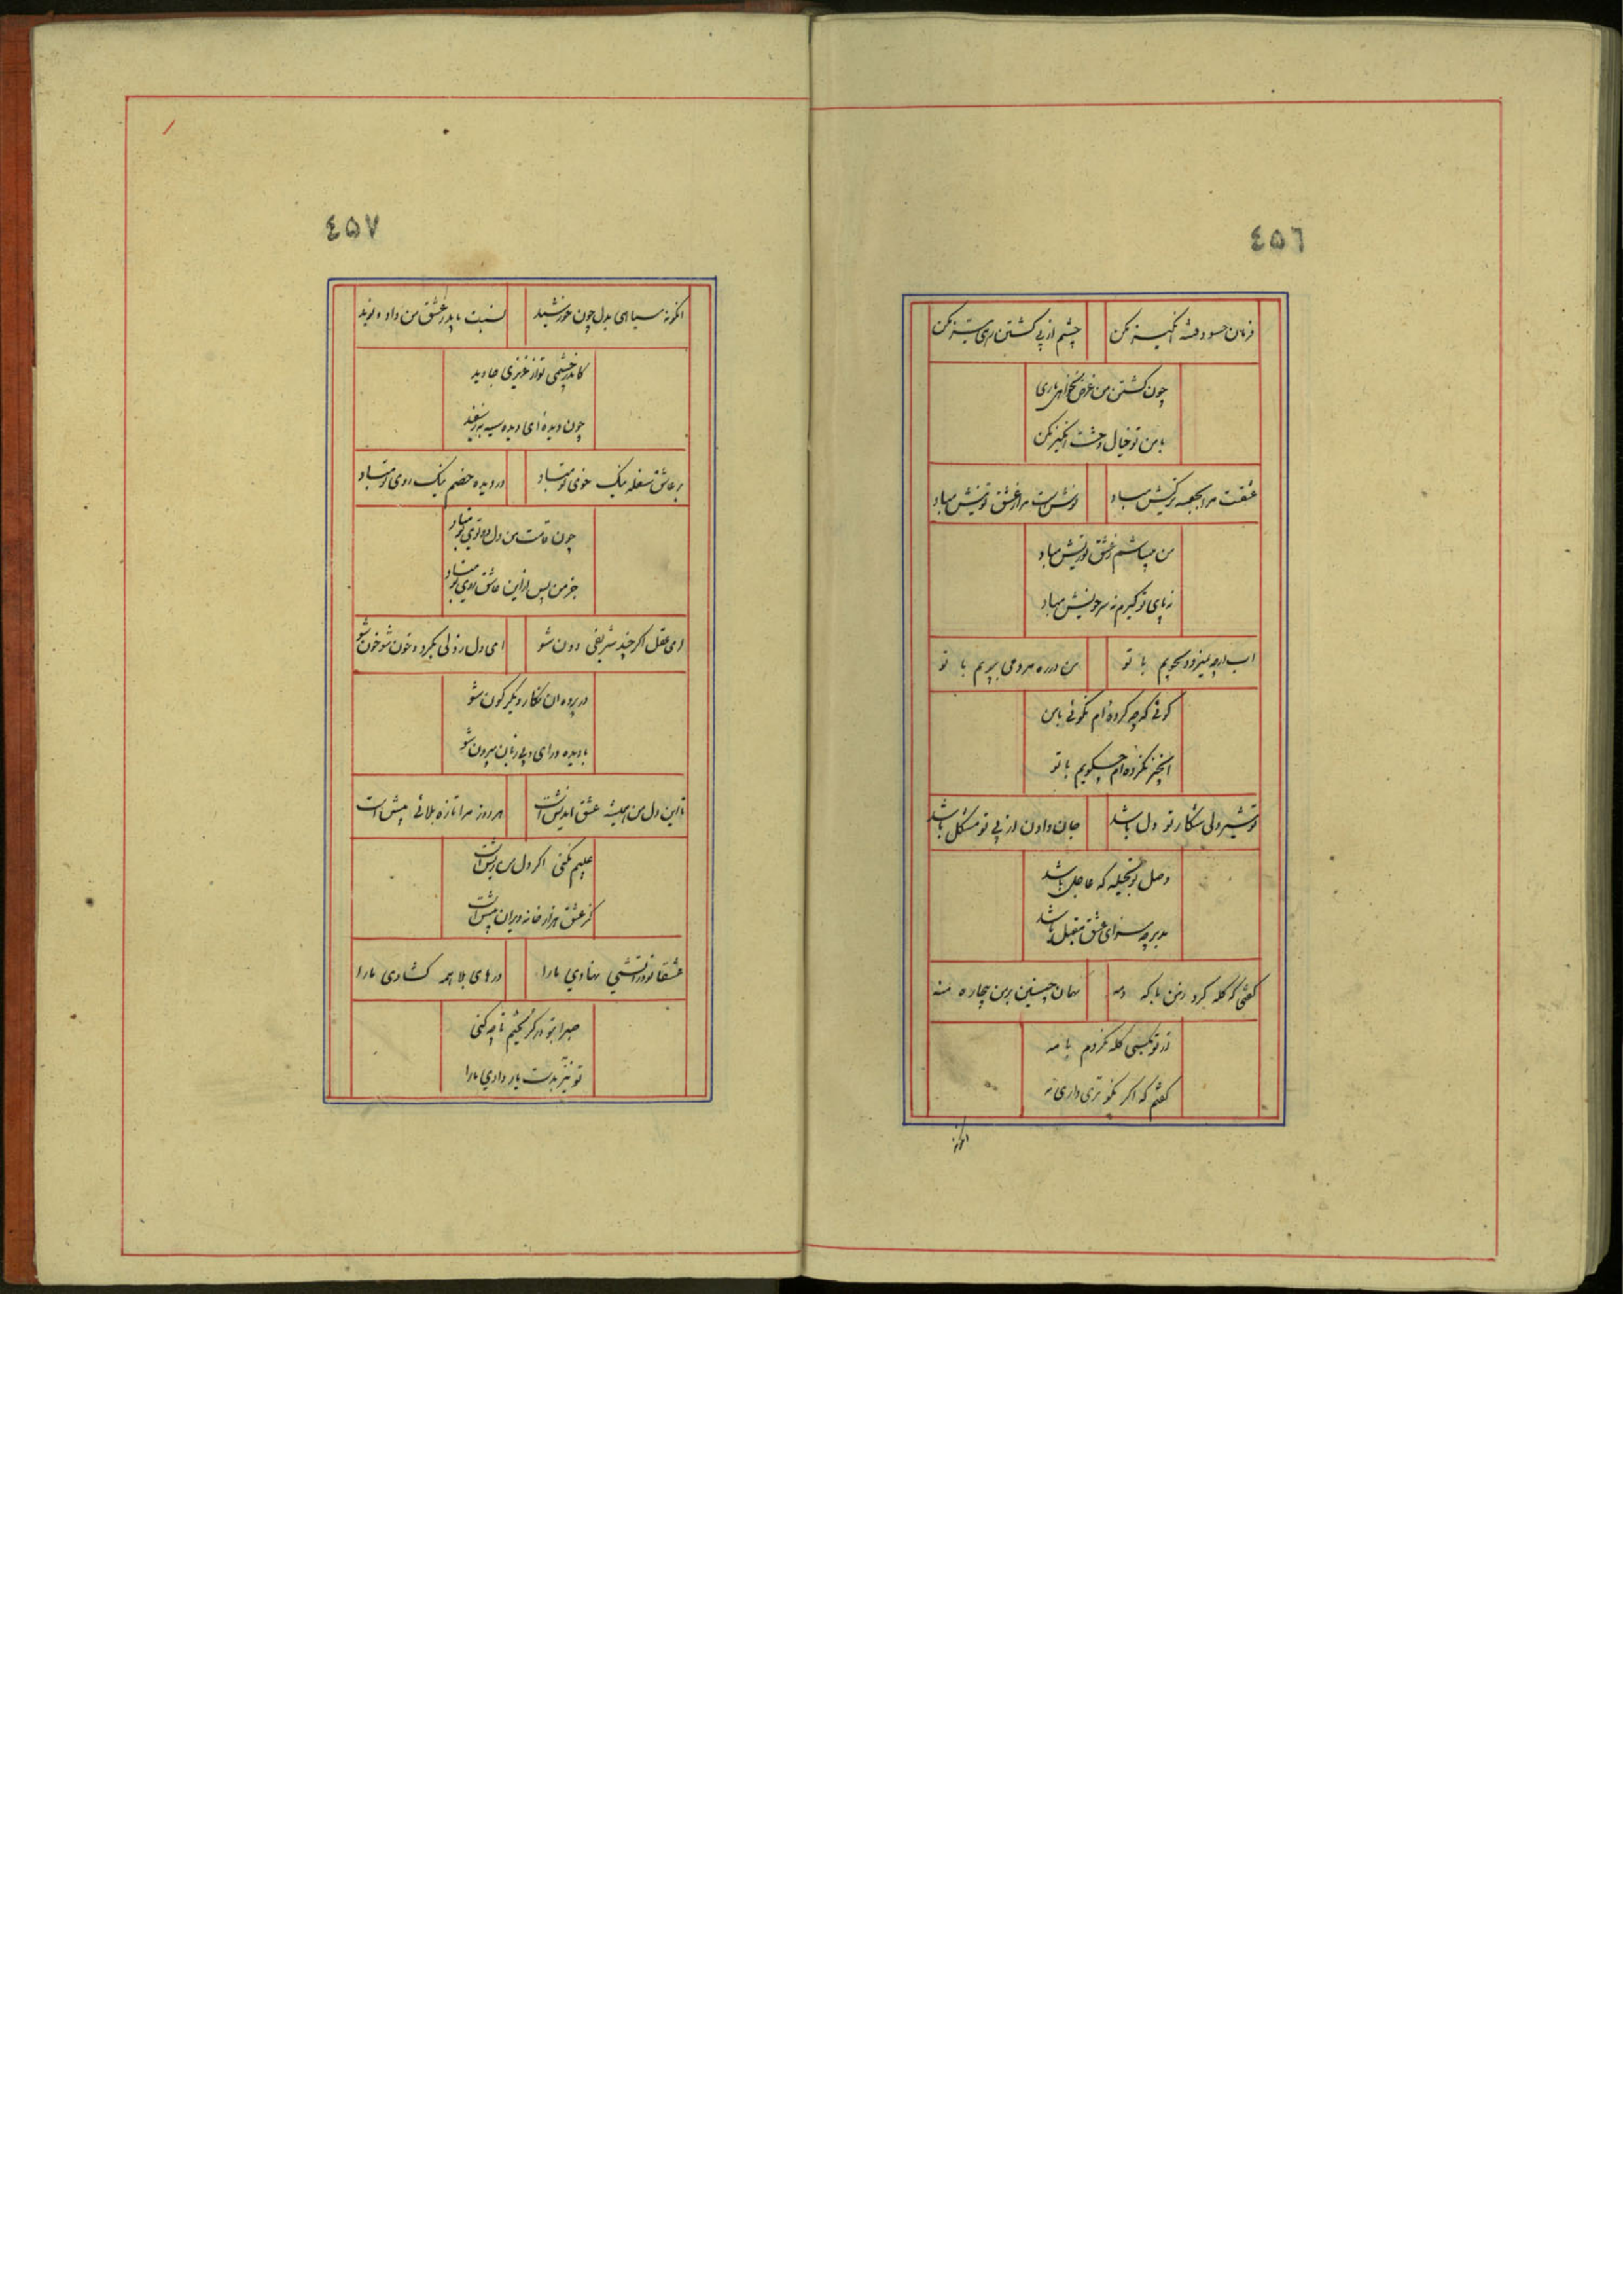 ٤٥٦
فرمان حسود فتنه انگیز مکن
چشم از پی کشتن رهی تیز مکن
چون کشتن من غرض نخواهی باری
با من تو خیال وحشت انگیز مکن
عشقت مرا بجعبه در کیش مباد
نوش است مرا ز عشق تو نیش مباد
من میباشم ز عشق تو ریش مباد
ز پای تو گیرم نه سر خویش مباد
آب ارچه نمیرود بجویم با تو
من در ره مردمی بپویم با تو
گوئی که چه کرده‌ام نگوئی با من
آن چیز نکرده‌ام چه گویم با تو
تو شیر دلی شکار تو دل باشد
جان دادن از پی تو مشکل باشد
وصل تو بحیله که حاصل باشد
مدبر چه سزای عشق مقبل باشد
گفتی که گله کرد ز من با که و مه
بهتان چنین بر من بیچاره منه
از تو بکسی گله نکردم با مه
گفتم که اگر نکو تری داری نه
٤٥٧
انگونه سیاهی بدل چون خورشید
نسبت بپدر عشق من داد نوید
کاندر چشمی تو از عزیزی جاوید
چون دیده‌ای دیده سیه به ز سفید
بر عاشق سفله نیک خوی تو مباد
در دیده خصم نیک روی تو مباد
چون قامت من دل دوتوی تو مباد
جز من پس ازین عاشق روی تو مباد
ای عقل اگر چند شریفی دون شو
ای دل ز دلی بگرد و خون شو خون شو
در پرده آن نگار دیگر گون شو
بادیده درای و بی زبان بیرون شو
تا این دل من همیشه عشق اندیش است
هر روز مرا تازه بلائی پیش است
عیبم نکنی اگر دل من ریش است
کز عشق هزار خانه ویران پیش است
عشقا تو در آتشی نهادی ما را
درهای بلا همه گشادی ما را
صبرا بتو در گریختم تا چه کنی
تو نیز بدست یار دادی ما را